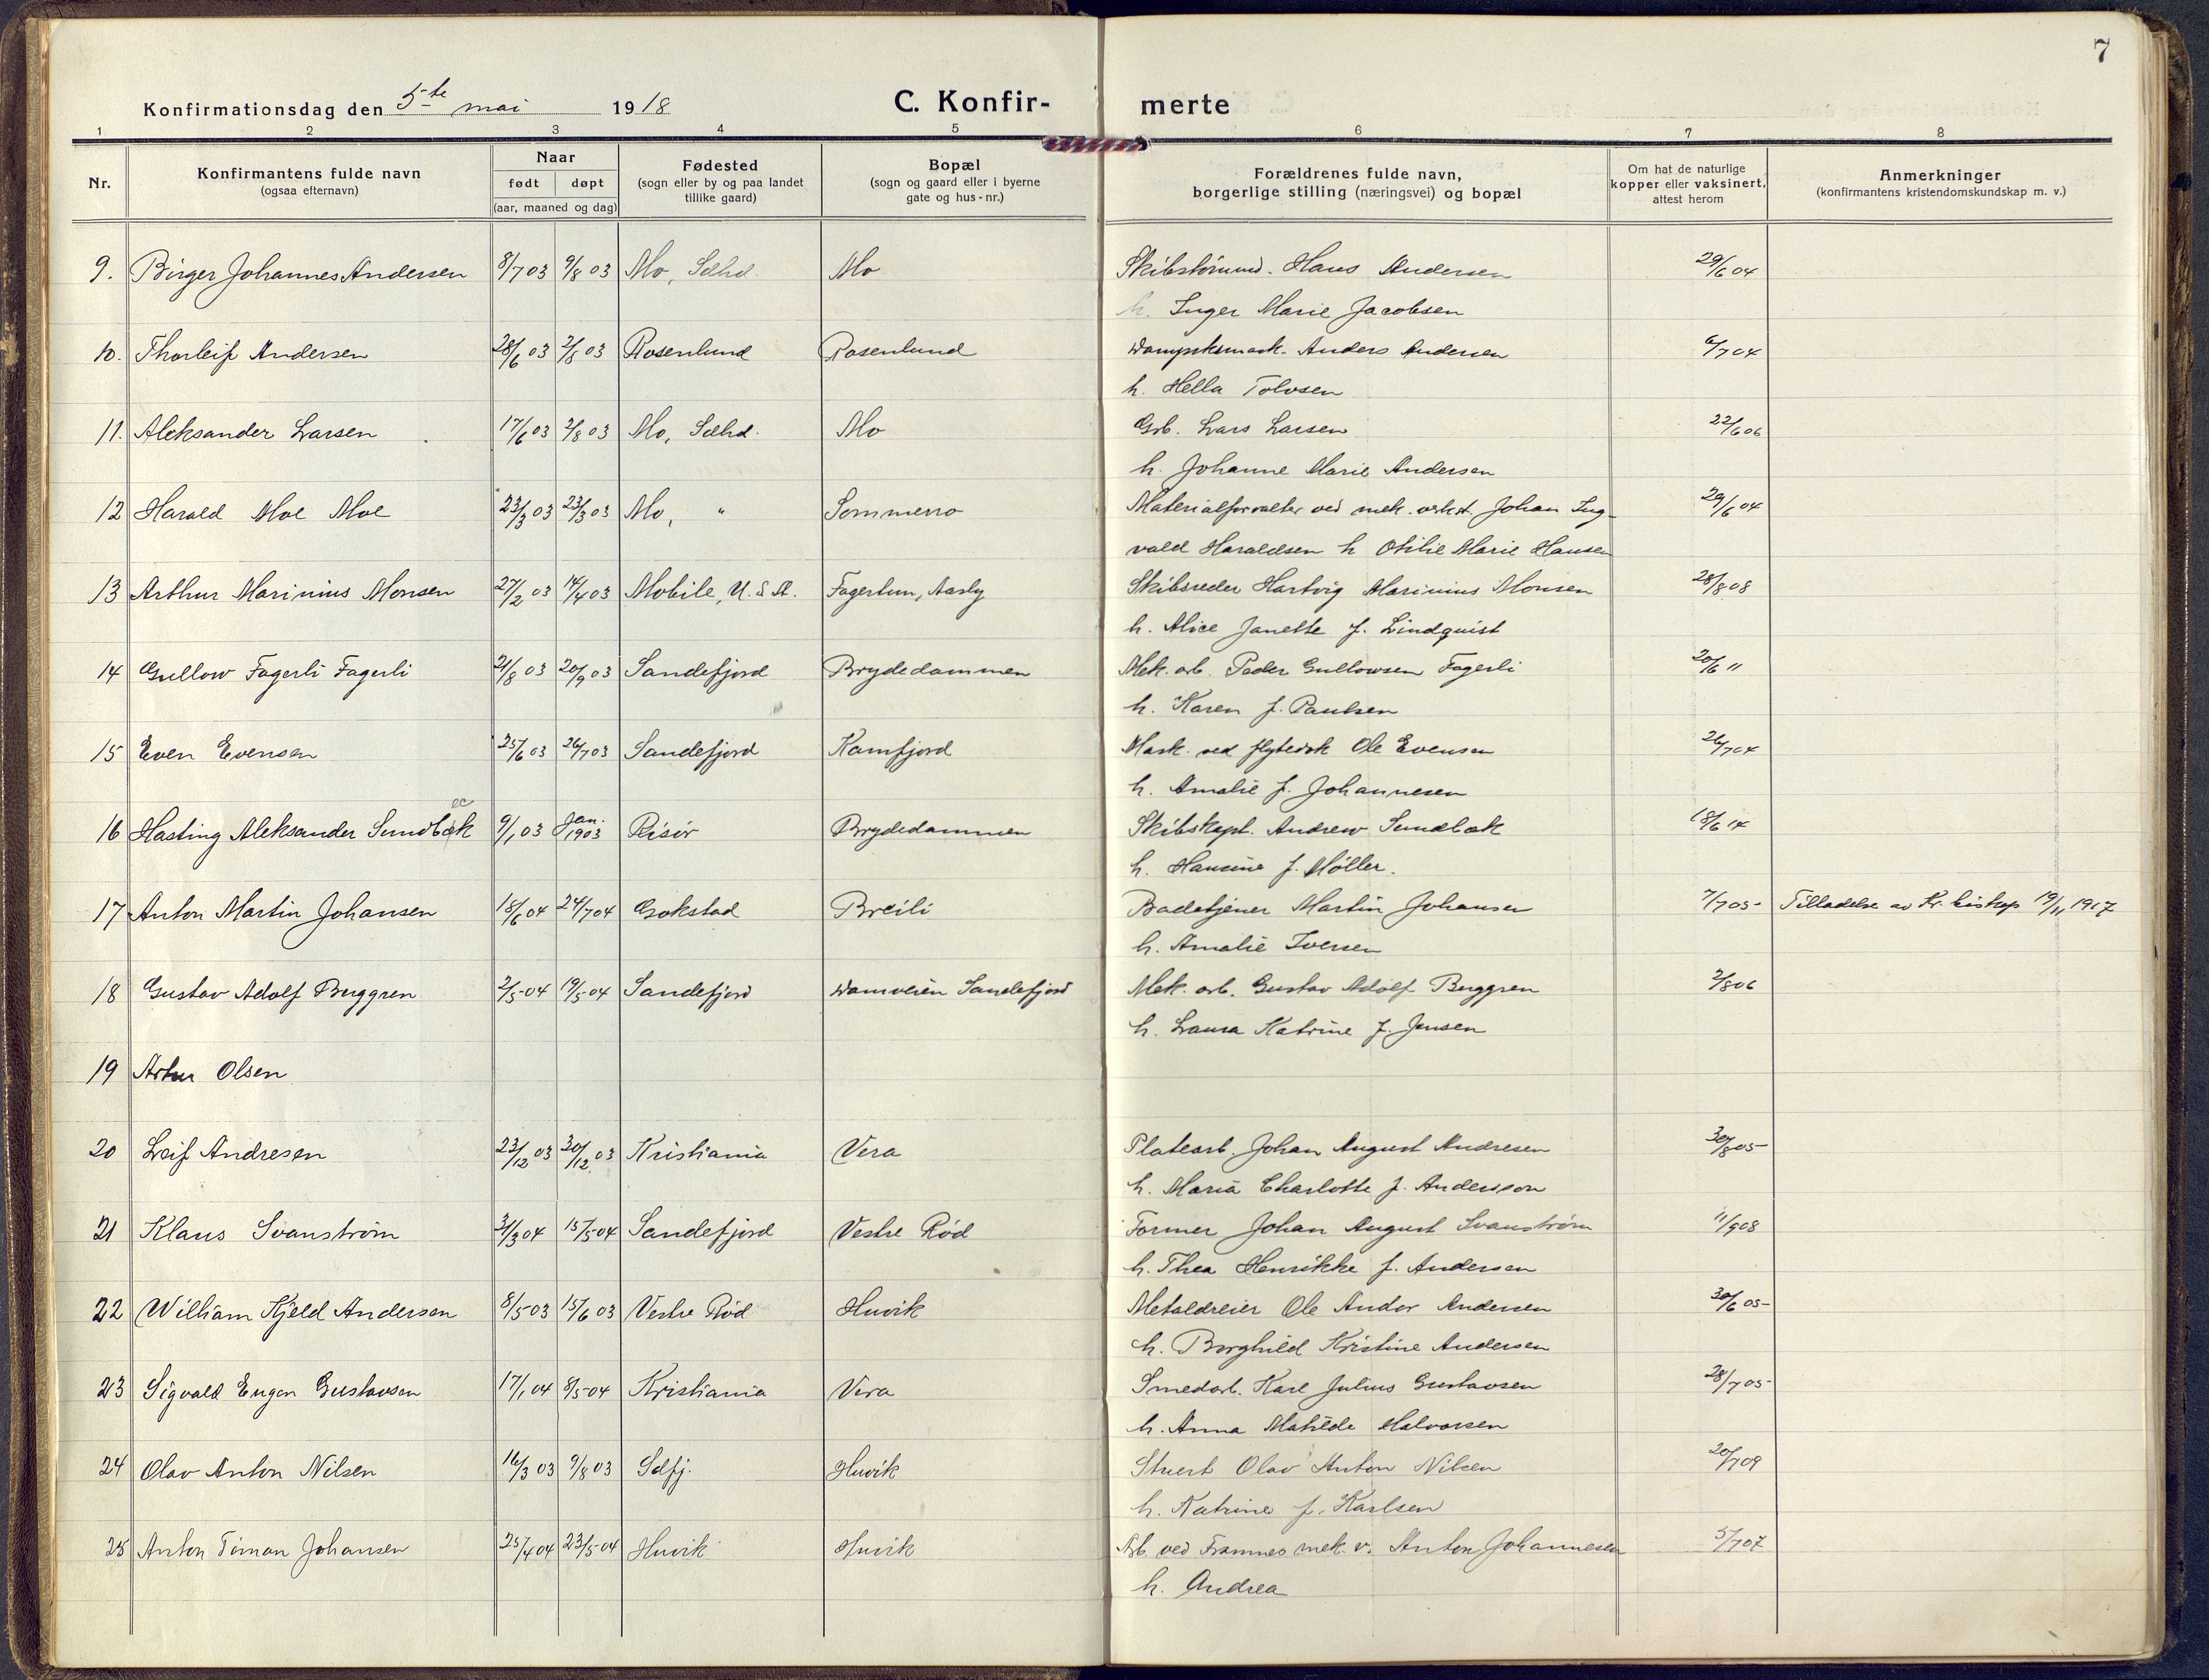 7
Konfirmationsdag den 5-te mai 1918 C. Konfirmerte
1 2 3 4 5 6 7 8
Nr.
Konfirmantens fulde navn
(ogsaa efternavn)
Naar
født døpt
(aar, maaned og dag)
Fødested
(sogn eller by og paa landet
tillike gaard)
Bopæl
(sogn og gaard eller i byerne
gate og hus-nr.)
Forældrenes fulde navn,
borgerlige stilling (næringsvei) og bopæl
Om hat de naturlige
kopper eller vaksinert,
attest herom
Anmerkninger
(konfirmantens kristendomskundskap m. v.)
9. Birger Johannes Andersen 8/7 03 9/8 03 Mo, Sdhd. Mo Hans Andersen 29/6 04
h. Inger Marie Jacobsen
10. Thorleif Andersen 28/6 03 2/8 03 Rosenlund Rosenlund Anders Andersen 6/7 04
h. Hella Tolvsen
11. Aleksander Larsen 17/6 03 2/8 03 Mo, Sdhd. Mo Grb. Lars Larsen 22/6 06
h. Johanne Marie Andersen
12 Harald Moe Moe 23/3 03 23/3 03 Mo, " Sommerro Materialforvalter ved mek. verkst. Johan Ing-
29/6 04
vald Haraldsen h Otilie Marie Hansen
13 Arthur Marinius Monsen 27/2 03 14/4 03 Mobile, U.S.A. Fagertun, Aasly Skibsreder Hartvig Marinius Monsen 28/8 08
h. Alice Janette f. Lindquist
14 Gullow Fagerli Fagerli 21/8 03 20/9 03 Sandefjord Brydedammen Mek. arb. Peder Gullowsen Fagerli 20/6 11
h. Karen f. Paulsen
15 Even Evensen 25/6 03 26/7 03 Sandefjord Kamfjord Mask. ved flytedok Ole Evensen 26/7 04
h. Amalie f. Johannesen
16 Hasting Aleksander Sundbæk 9/1 03 Jan. 1903 Risør Brydedammen Skibskapt. Andrew Sundbæk 18/6 14
h. Hansine f. Møller.
17 Anton Martin Johansen 18/6 04 24/7 04 Gokstad Breili Badetjener Martin Johansen 7/7 05 Tilladelse av Kr. biskop 19/11 1917
h. Amalie Iversen
18 Gustav Adolf Berggren 2/5 04 19/5 04 Sandefjord Damveien Sandefjord Mek. arb. Gustav Adolf Berggren 2/8 06
h. Laura Katrine f. Jensen
19 Artur Olsen
20 Leif Andresen 23/12 03 30/12 03 Kristiania Vera Platearb. Johan August Andresen 30/8 05
h. Maria Charlotte f. Andersson
21 Klaus Svanstrøm 31/3 04 15/5 04 Sandefjord Vestre Rød Former Johan August Svanstrøm 11/9 08
h. Thea Henrikke f. Andersen
22 William Kjeld Andersen 8/5 03 15/6 03 Vestre Rød Huvik Metaldreier Ole Andor Andersen 30/6 05
h. Borghild Kristine Andersen
23 Sigvald Eugen Gustavsen 17/1 04 8/5 04 Kristiania Vera Smedarb. Karl Julius Gustavsen 28/7 05
h. Anna Matilde Halvorsen
24 Olav Anton Nilsen 16/3 03 9/8 03 Sdfj. Huvik Stuert Olav Anton Nilsen 20/7 09
h. Katrine f. Karlsen
25 Anton Timan Johansen 25/4 04 23/5 04 Huvik Huvik Arb. ved Framnes mek. v. Anton Johannesen 5/7 07
h. Andrea